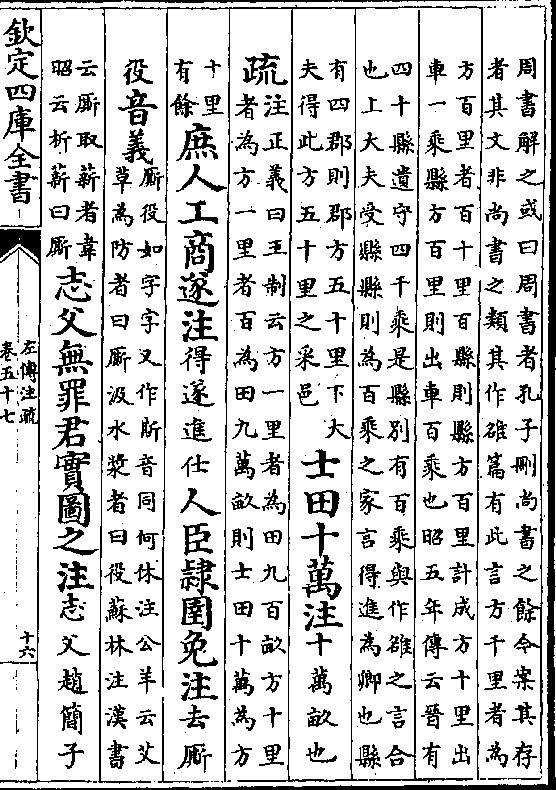 周書解之或曰周書者孔子刪尚書之餘今案其存
者其文非尚書之類其作雒篇有此言方千里者為
方百里者百十里百縣則縣方百里計成方十里出
車一乘縣方百里則出車百乘也昭五年傳云晉有
四十縣遺守四千乘是縣別有百乘與作雒之言合
也上大夫受縣縣則為百乘之家言得進為卿也縣
有四郡則郡方五十里下大
夫得此方五十里之采邑
士田十萬注十萬畝也
疏
注正義曰王制云方一里者為田九百畝方十里
者為方一里者百為田九萬畝則士田十萬為方
十里
有餘
庶人工商遂注得遂進仕人臣隸圉免注去廝
役音義
廝役如字字又作斯音同何休注公羊云艾
草為防者曰廝汲水漿者曰役蘇林注漢書
云廝取薪者韋
昭云析薪曰廝
志父無罪君實圖之注志父趙簡子
欽定四庫全書
左傳注疏
卷五十七
十六